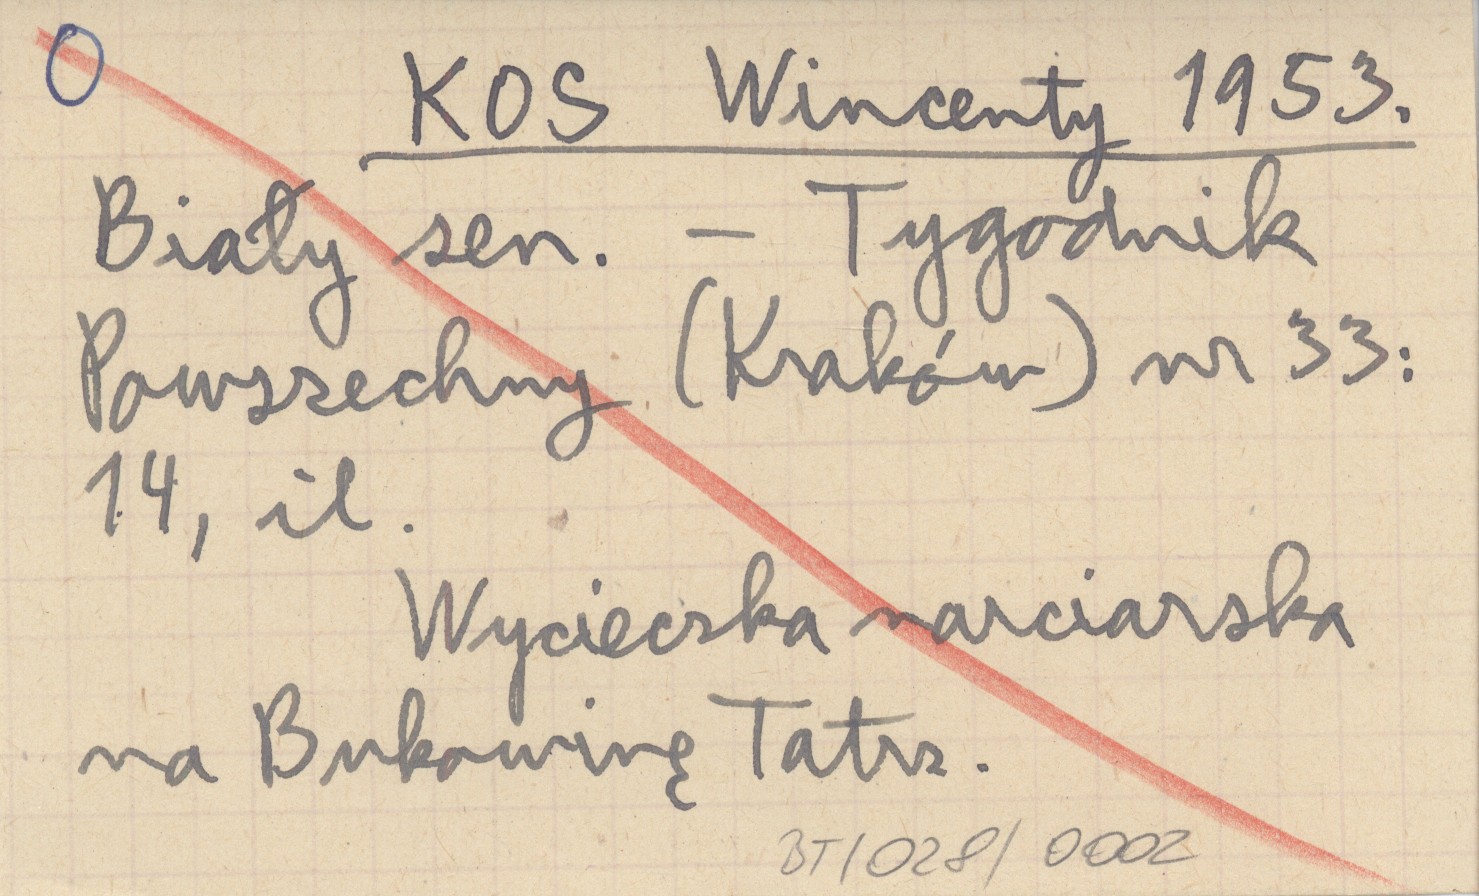 0
KOS Wincenty 1953.
Biały sen. – Tygodnik
Powszechny (Kraków) nr 33:
14, il.
Wycieczka narciarska
na Bukowinę Tatrz.
BT/028/0002